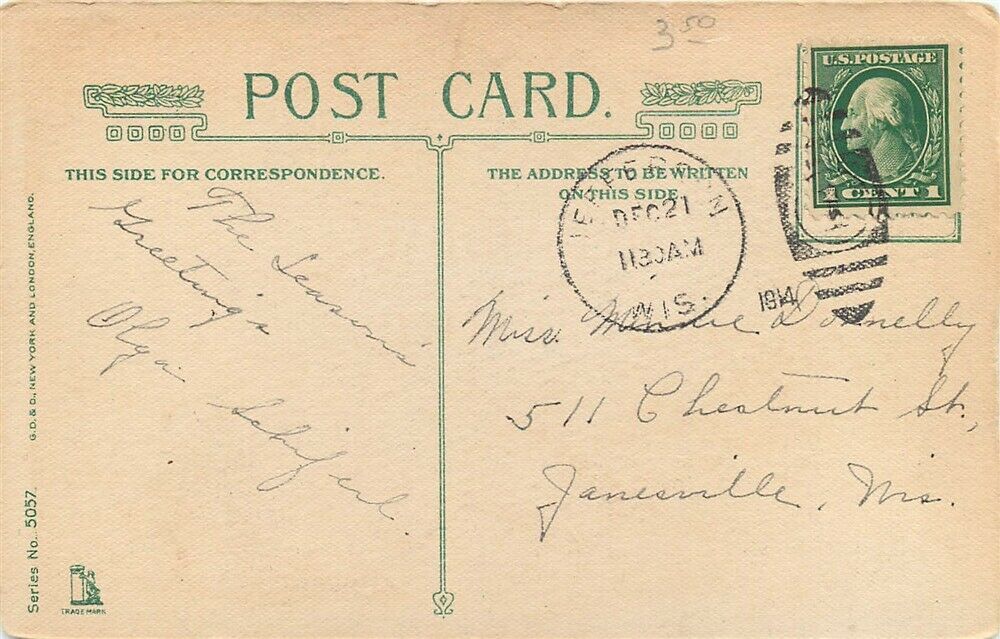 3.50
POST CARD.
U.S. POSTAGE
1 CENT 1
THIS SIDE FOR CORRESPONDENCE.
THE ADDRESS TO BE WRITTEN
ON THIS SIDE
JEFFERSON
DEC 21
1130AM
WIS.
1914
The Seasons'
Greetings
Olga
Schiferl
Miss. Minnie Donnelly
511 Chestnut St.,
Janesville, Wis.
G. D. & D., NEW YORK AND LONDON, ENGLAND.
Series No. 5057.
TRADE MARK